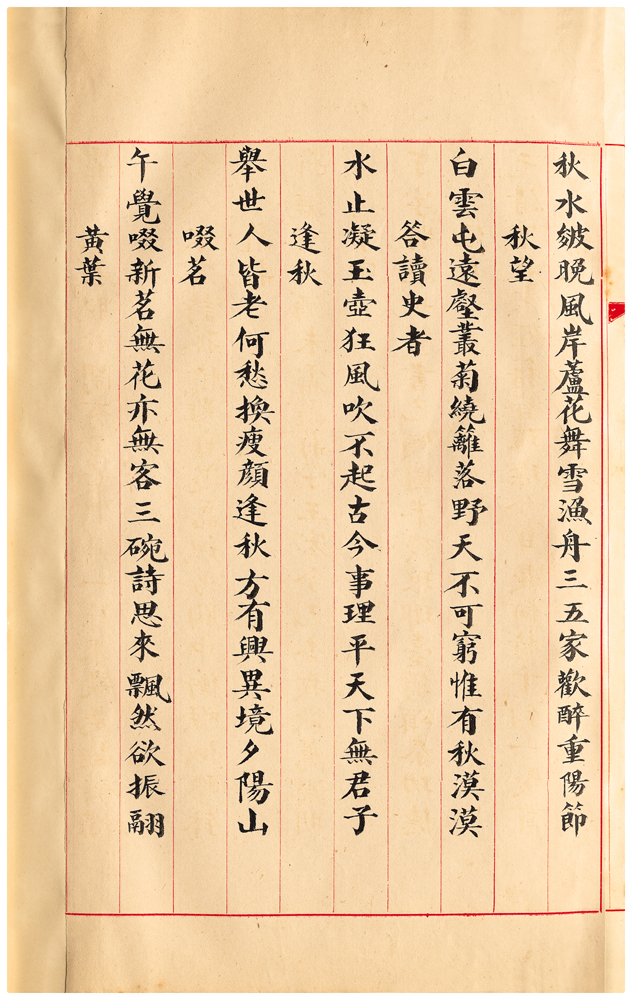 秋水皴晚風岸蘆花舞雪漁舟三五家歡醉重陽節
秋望
白雲屯遠壑叢菊繞籬落野天不可窮惟有秋漠漠
答讀史者
水止凝玉壺狂風吹不起古今事理平天下無君子
逢秋
舉世人皆老何愁換瘦顏逢秋方有興異境夕陽山
啜茗
午覺啜新茗無花亦無客三碗詩思來飄然欲振翮
黃葉